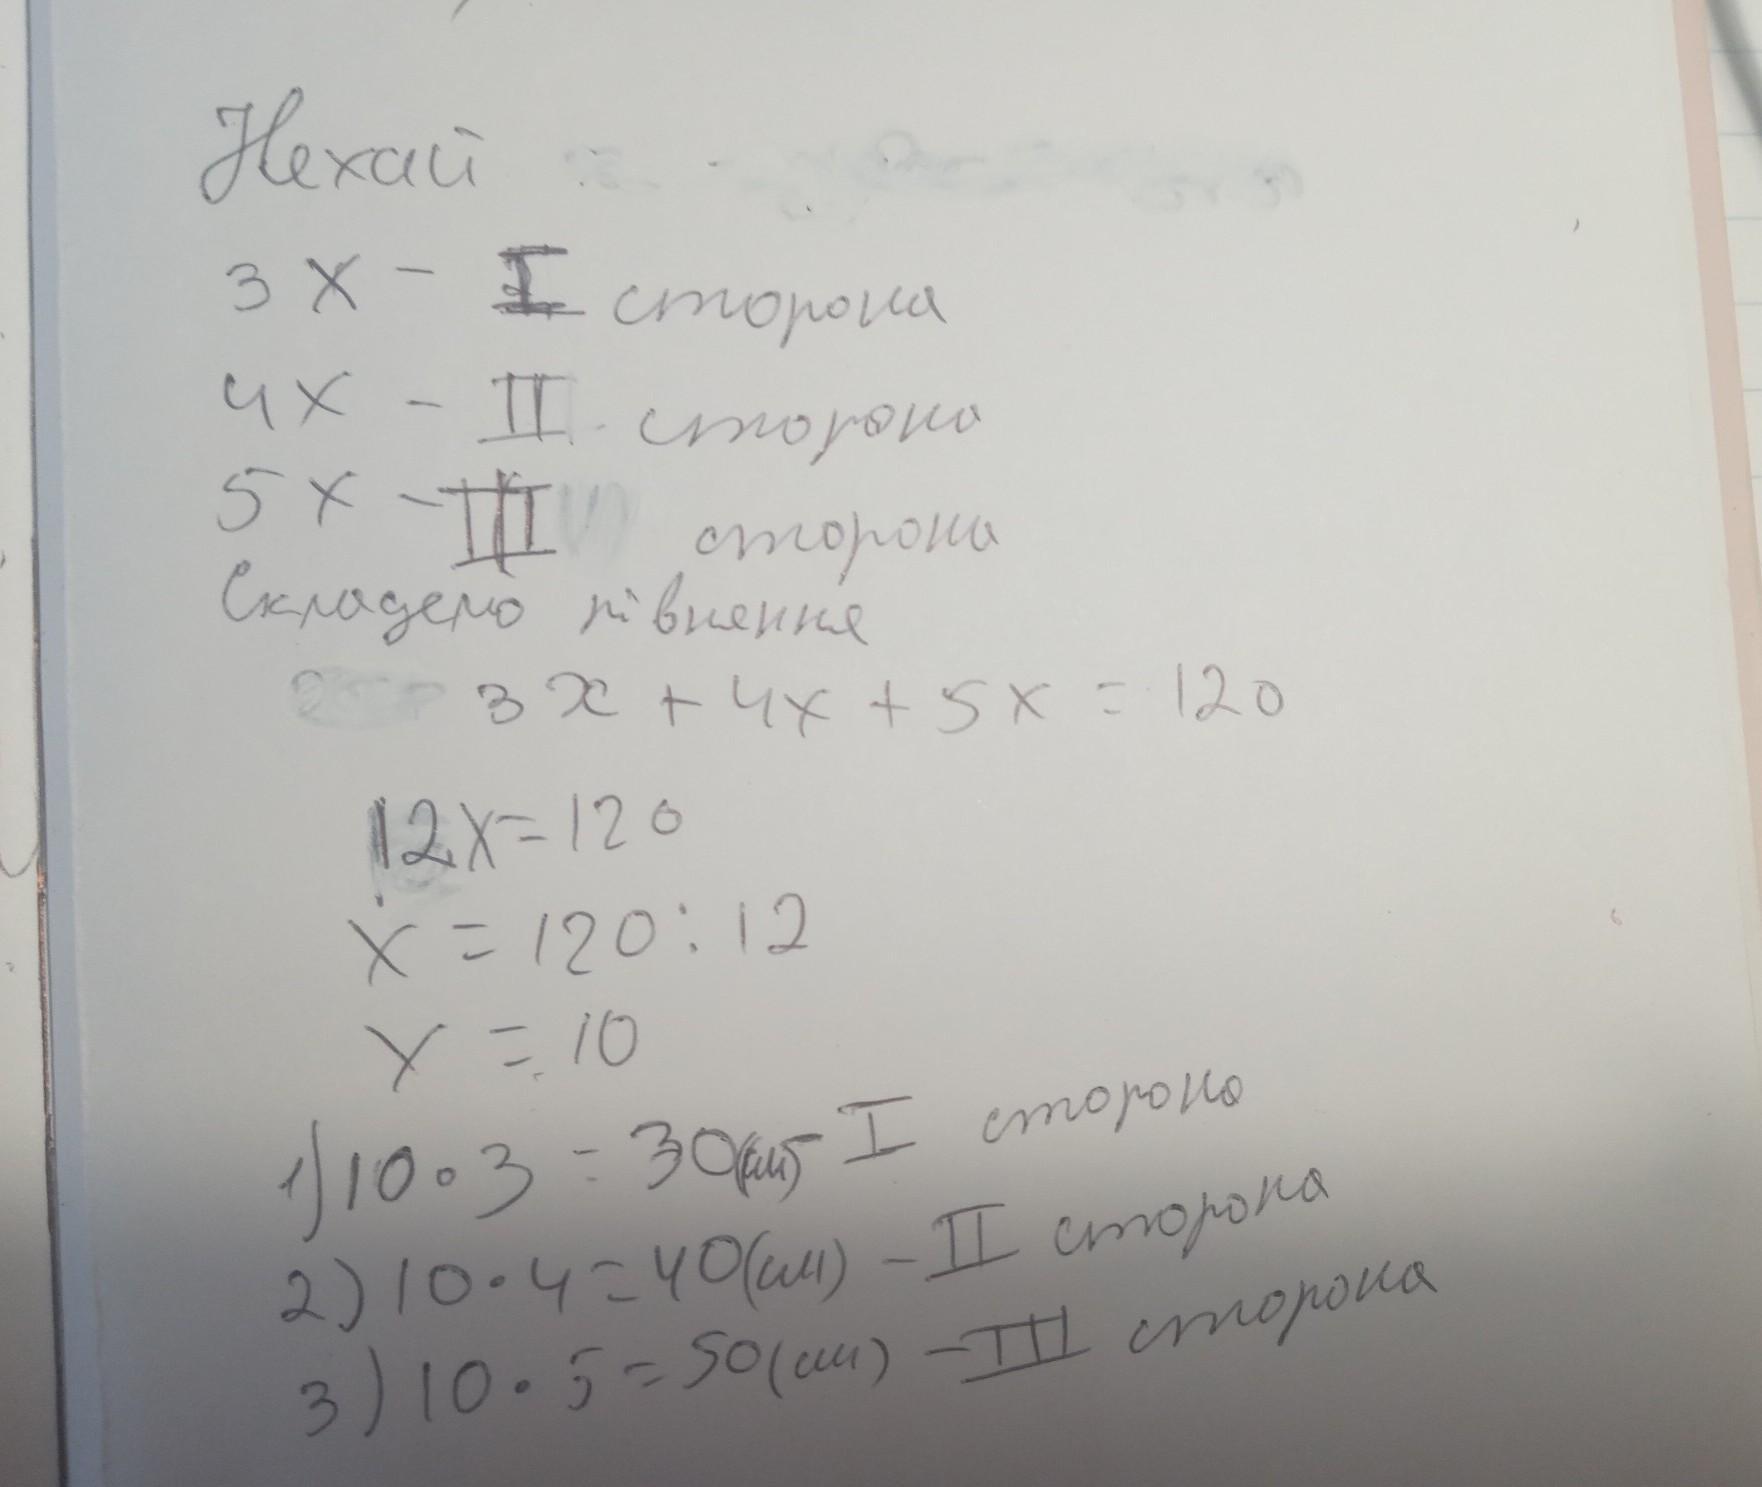 Нехай
3x - I сторона
4x - II сторона
5x - III сторона
Складемо рівнення
3x + 4x + 5x = 120
12x = 120
x = 120 : 12
x = 10
1) 10 · 3 = 30(см) - I сторона
2) 10 · 4 = 40(см) - II сторона
3) 10 · 5 = 50(см) - III сторона